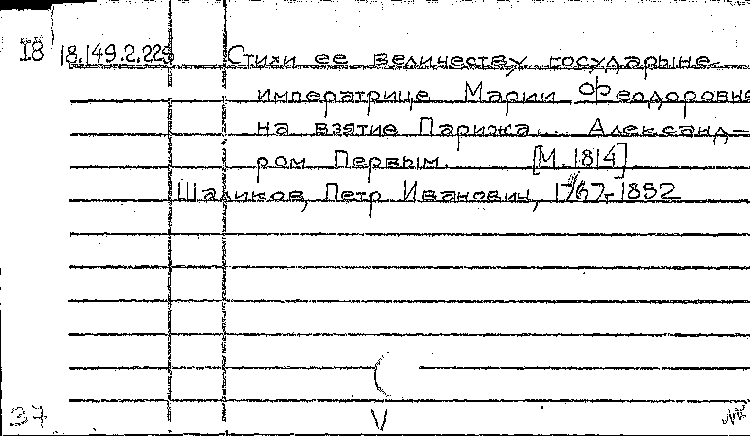 I8 18.149.2.225 Стихи ее величеству государыне
императрице Марии Феодоровне
на взятие Парижа... Александ-
ром Первым. [М.1814]
Шаликов, Петр Иванович, 1767-1852
37 V